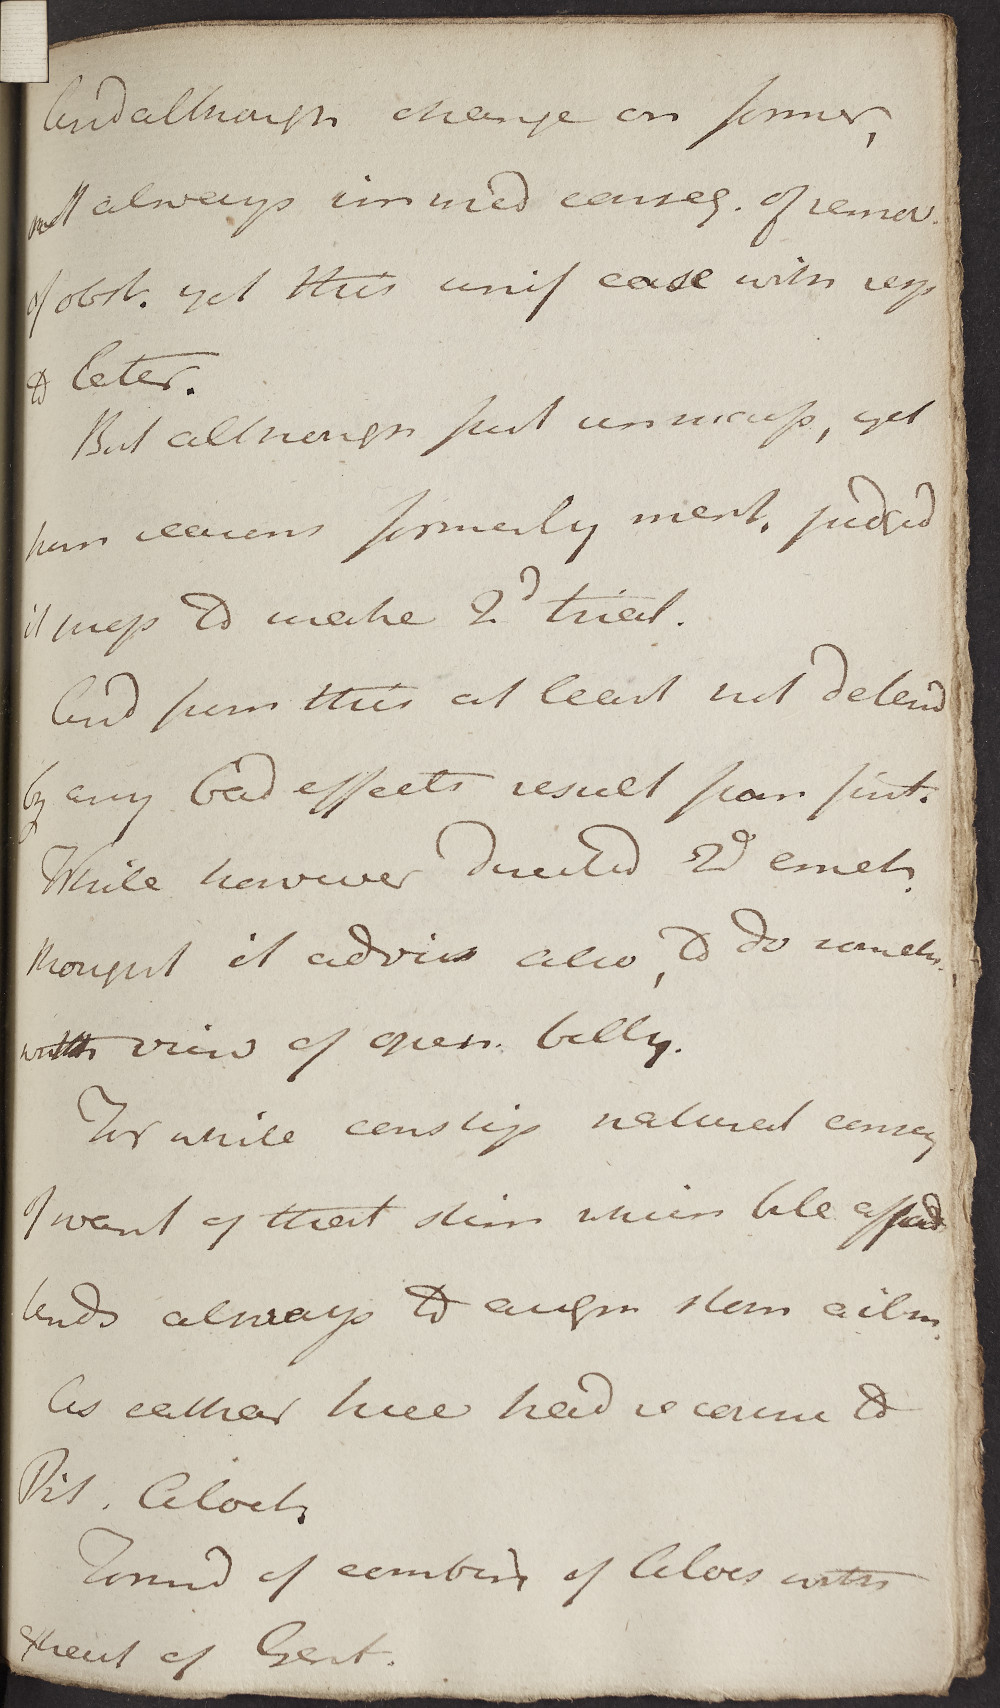 And although change on former,
not always immed conseq. of remov.
of obst. yet this unif case with resp
to later.
But although first unsucessf, yet
from reasons formerly ment. judged
it prop to make 2d trial.
And from this at least not deterd
by any bad effects result from first.
While however directed 2d emet.
thought it advis also, to do someth.
with view of open. belly.
For while constip natural conseq
of want of that stim which bile afford
tends always to augm stom ailm.
As cathar here had recourse to
Pil. Aloet.
Formd of combin of Aloes with
extract of Gent.